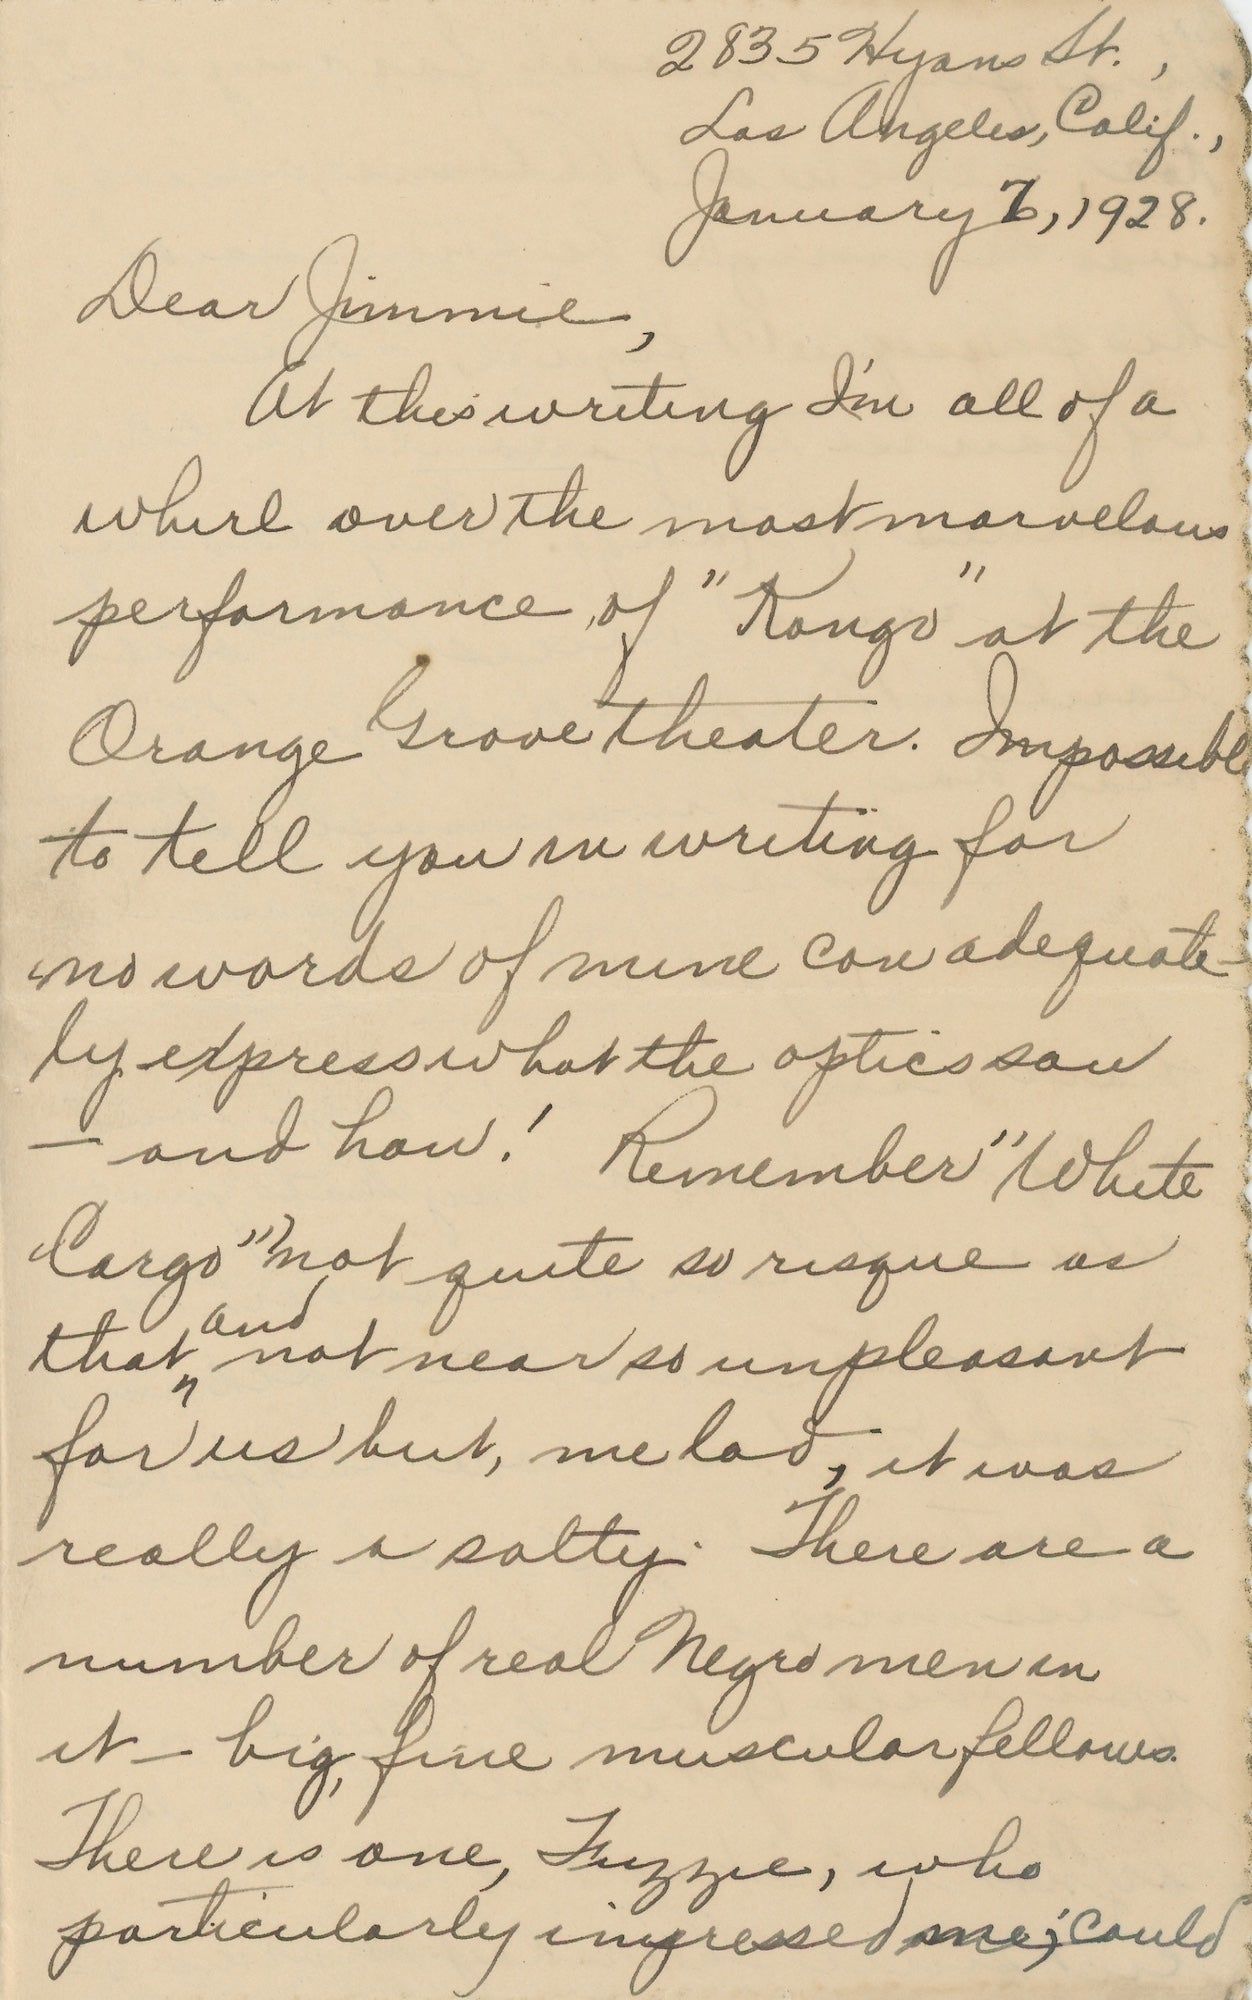 2835 Hyans St.,
Los Angeles, Calif.,
January 7, 1928.
Dear Jimmie,
At this writing I'm all of a
whirl over the most marvelous
performance of "Kongo" at the
Orange Grove theater. Impossible
to tell you in writing for
no words of mine can adequate-
ly express what the optics saw
- and how! Remember "White
Cargo" not quite so risque as
that and not near so unpleasant
for us but, me lad, it was
really a salty. There are a
number of real Negro men in
it - big, fine muscular fellows.
There is one, Fuzzie, who
particularly impressed me; could